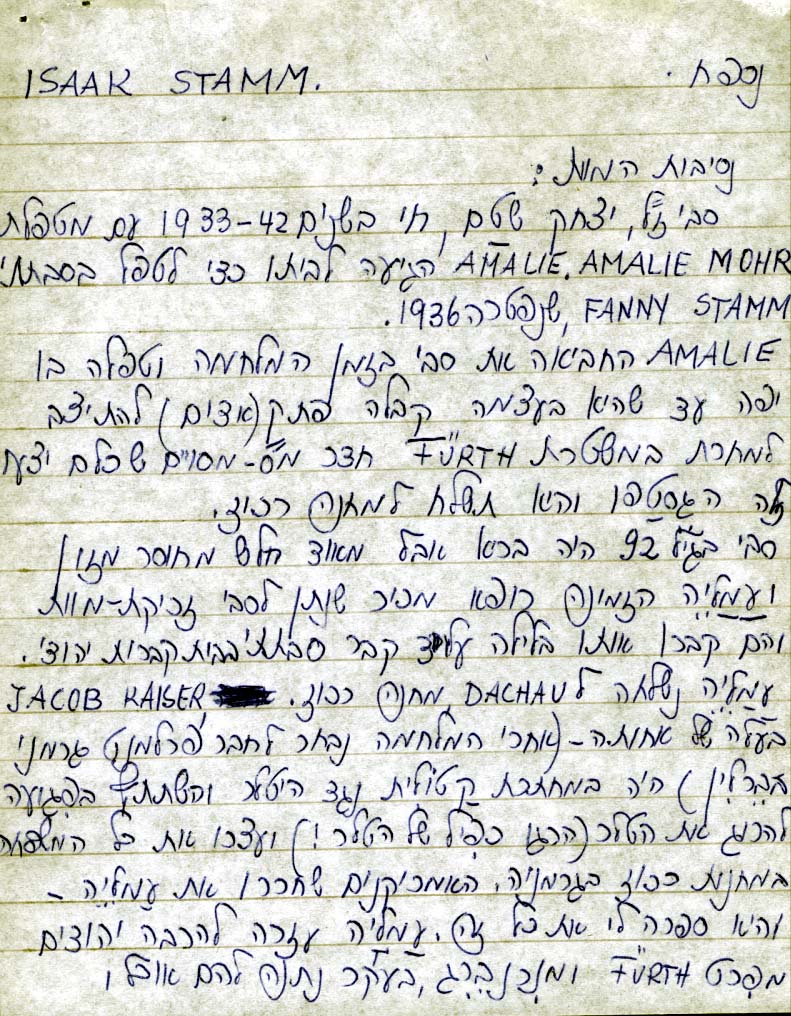 נספח . ISAAK STAMM.
נסיבות המוות:
סבי ז"ל, יצחק שטם, חי בשנים 1933-42 עם מטפלת
AMALIE, AMALIE MOHR הגיעה לביתו כדי לטפל בסבתי
FANNY STAMM, שנפטרה 1936.
AMALIE החביאה את סבי בזמן המלחמה וטפלה בו
יפה עד שהיא בעצמה קבלה פתק (אדום) להתיצב
למחרת במשטרת FÜRTH
הגסטפו והיא תשלח למחנה רכוז.
סבי בגיל 92 היה בריא אבל מאוד חלש מחוסר מזון
ועמליה הזמינה רופא מכיר שנתן לסבי זריקת-מוות
והם קברו אותו בלילה על יד קבר סבתי בבית קברות יהודי.
עמליה נשלחה לDACHAU מחנה רכוז. JACOB KAISER
בעלה של אחותה - (אחרי המלחמה נבחר לחבר פרלמנט גרמני
בברלין) היה במחתרת קטולית נגד היטלר והשתתף בפגועה
להרוג את הטלר (הרגו כפיל של הטלר!) ועצרו את כל המשפחה
במחנות רכוז בגרמניה. האמריקנים שחררו את עמליה -
והיא ספרה לי את כל זה. עמליה עזרה להרבה יהודים
מפרט FÜRTH ומנרנברג, בעקר נתנה להם אוכל,